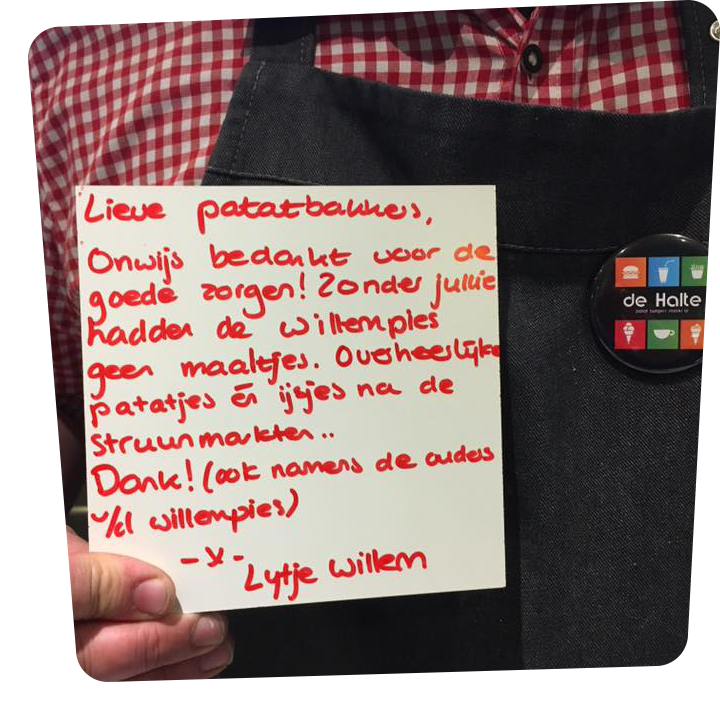 Lieve patatbakkers,
Onwijs bedankt voor de
goede zorgen! Zonder jullie
hadden de willempies
geen maaltjes. Overheerlijke
patatjes én ijsjes na de
struunmarkten..
Dank! (ook namens de ouders
v/d willempies)
-x-
Lytje Willem
de Halte